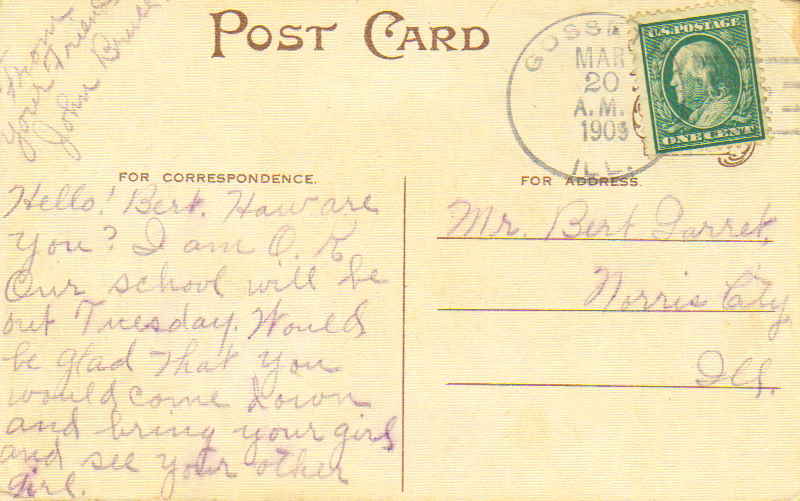 From
your Friend
John Bruse
POST CARD
GOSSE
MAR
20
A.M.
1909
ILL.
U.S. POSTAGE
ONE CENT
FOR CORRESPONDENCE.
FOR ADDRESS.
Hello! Bert. Haw are
you? I am O.K
Our school will be
out Tuesday. Would
be glad that you
would come down
and bring your girl
and see your other
girl.
Mr. Bert Garret,
Norris City
Ills.